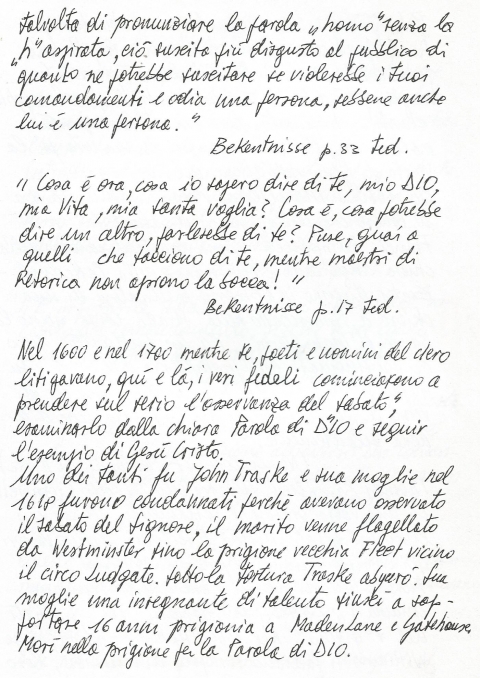 talvolta di pronunziare la parola „homo" senza la
„h" aspirata, ció suscita piú disgusto al pubblico di
quanto ne potrebbe suscitare se violerebbe i tuoi
comandamenti e odia una persona, sebbene anche
lui é una persona."
Bekentnisse p.33 ted.
„ Cosa é ora, cosa io saperò dire di te, mio DIO,
mia Vita, mia santa voglia? Cosa é, cosa potrebbe
dire un altro, parlerebbe di te? Pure, guai a
quelli che tacciono di te, mentre maestri di
Retorica non aprono la bocca! "
Bekentnisse p.17 ted.
Nel 1600 e nel 1700 mentre re, poeti e uomini del clero
litigavano, quí e lá, i veri fedeli cominciarono a
prendere sul serio l'osservanza del sabato",
esaminarlo dalla chiara Parola di D"IO e seguir
l'esempio di Gesú Cristo.
Uno dei tanti fu John Traske e sua moglie nel
1618 furono condannati perché avevano osservato
il sabato del Signore, il marito venne flagellato
da Westminster sino la prigione vecchia Fleet vicino
il circo Ludgate. sotto la tortura Traske abjuró. Sua
moglie una insegnante di talento riuscí a sop-
portare 16 anni prigionia a MadenLane e Gatehouse.
Morí nella prigione per la Parola di DIO.